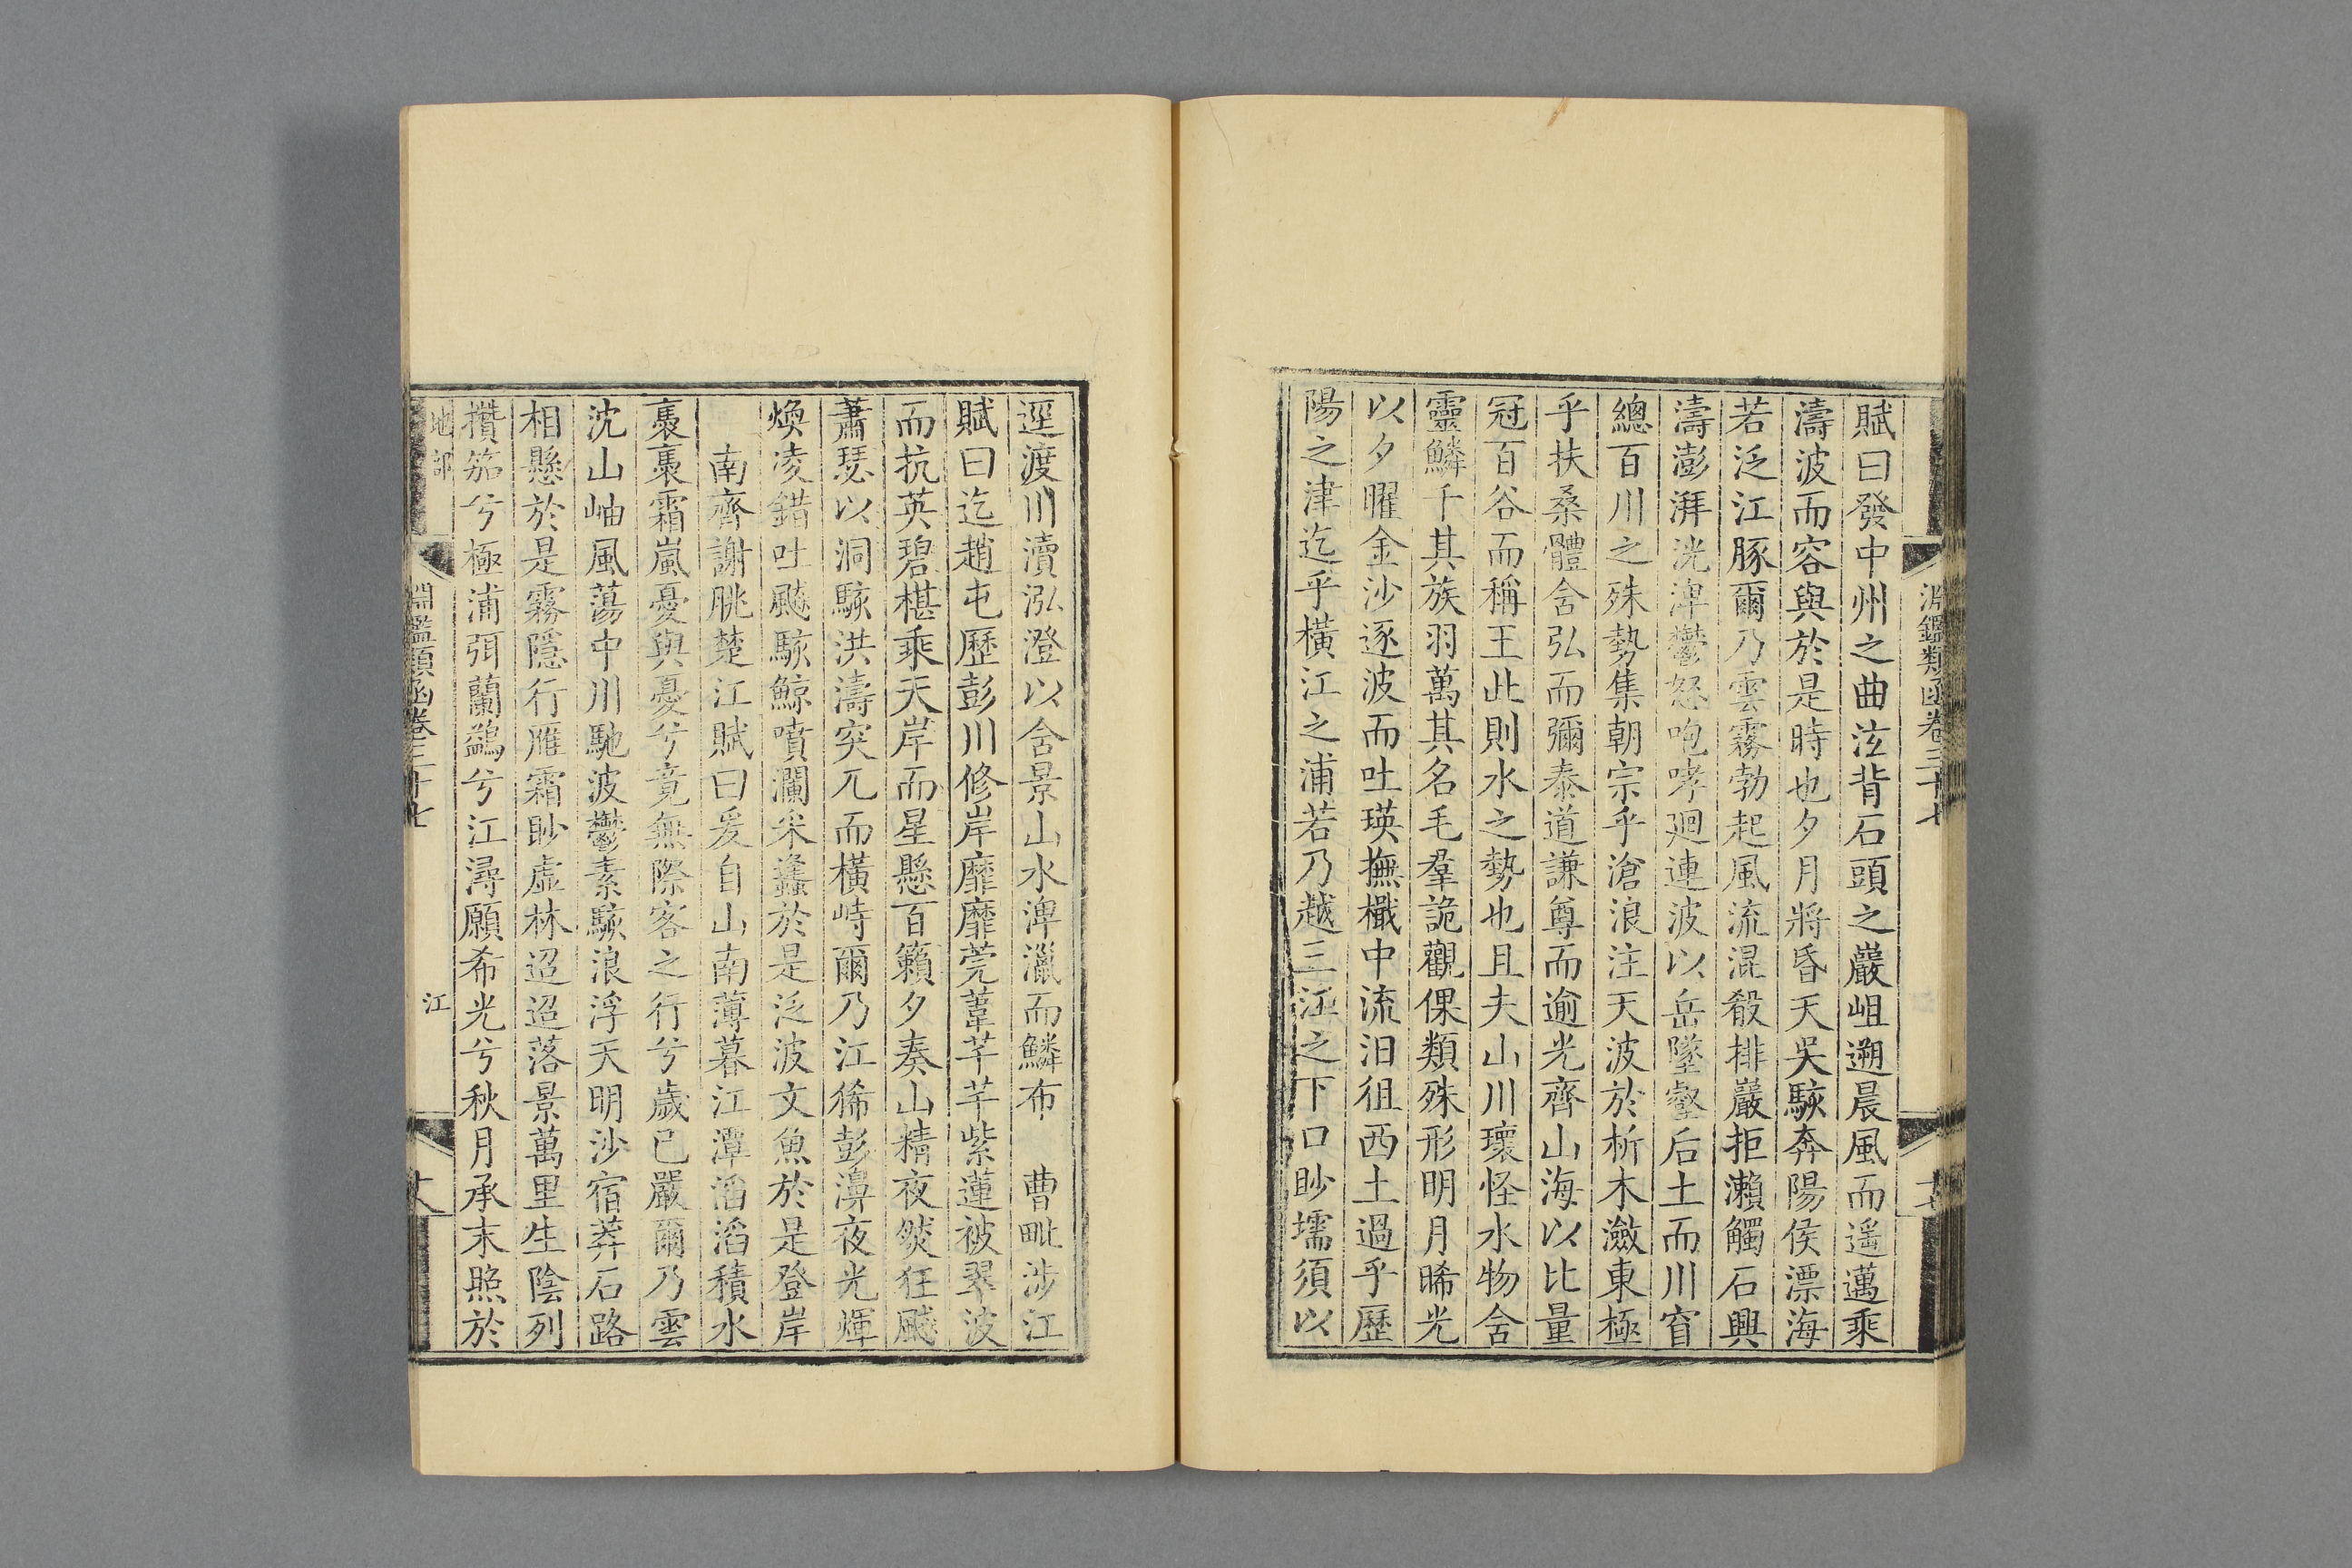 淵鑑類函卷三十七
賦曰發中州之曲泣背石頭之巖岨遡晨風而遥邁乘
濤波而容與於是時也夕月將昏天吳駭奔陽侯漂海
若泛江豚爾乃雲霧勃起風流混殽排巖拒瀨觸石興
濤澎湃洸渾鬱怒咆哮廻連波以岳墜壑后土而川窅
總百川之殊勢集朝宗乎滄浪注天波於析木瀲東極
乎扶桑體含弘而彌泰道謙尊而逾光齊山海以比量
冠百谷而稱王此則水之勢也且夫山川瓌怪水物含
靈鱗千其族羽萬其名毛羣詭觀倮類殊形明月晞光
以夕曜金沙逐波而吐瑛撫檝中流汨徂西土過乎歷
陽之津迄乎橫江之浦若乃越三江之下口眇壖須以
逕渡川瀆泓澄以含景山水渒灖而鱗布 曹毗涉江
賦曰迄趙屯歷彭川修岸靡靡莞葦芊芊紫蓮被翠波
而抗英碧椹乘天岸而星懸百籟夕奏山精夜燃狂飈
蕭瑟以洞駭洪濤突兀而橫峙爾乃江狶彭濞夜光煇
煥凌錯吐飈駭鯨噴瀾采蠭於是泛波文魚於是登岸
南齊謝朓楚江賦曰爰自山南薄暮江潭滔滔積水
裊裊霜嵐憂與憂兮竟無際客之行兮歲已嚴爾乃雲
沈山岫風蕩中川馳波鬱素駭浪浮天明沙宿莽石路
相懸於是霧隱行雁霜眇虛林迢迢落景萬里生陰列
攢笳兮極浦弭蘭鷁兮江潯願希光兮秋月承末照於
地部 淵鑑類函卷三十七 江